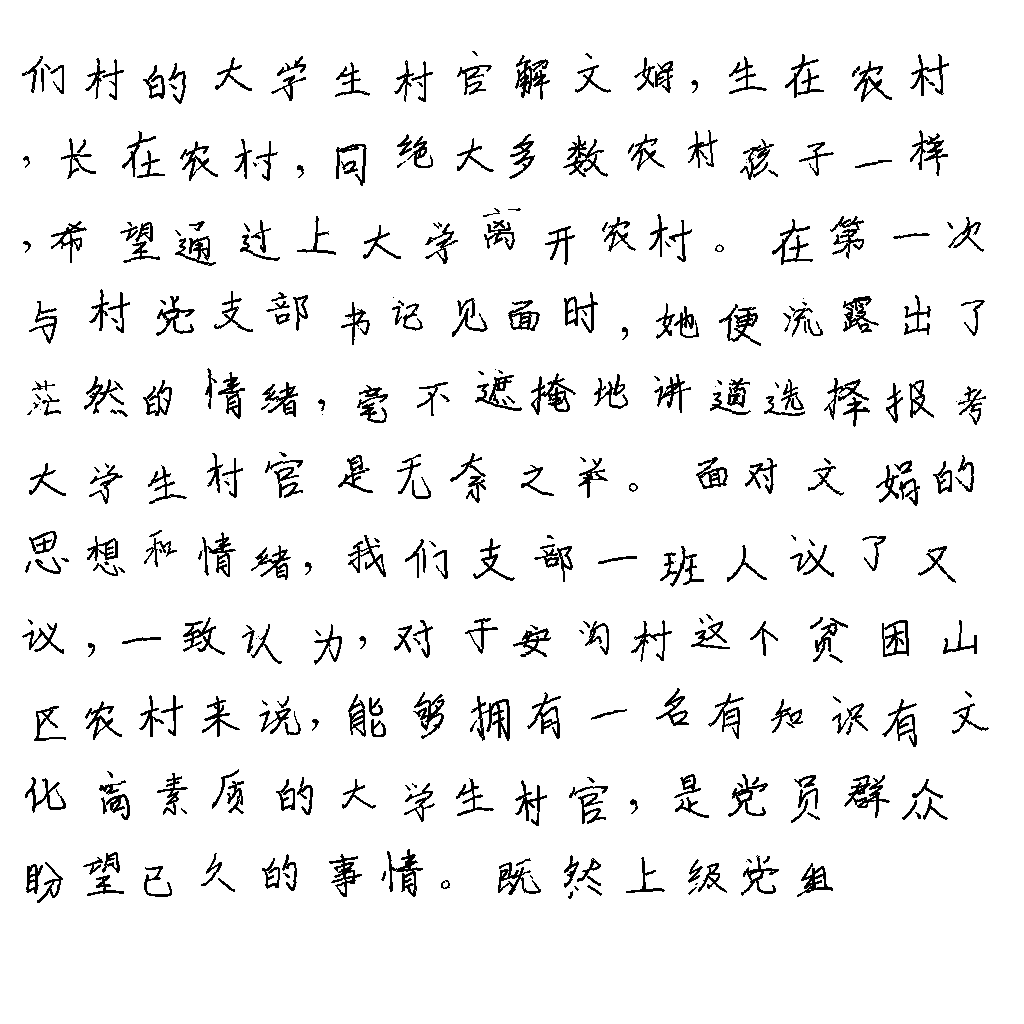 们村的大学生村官解文娟,生在农村
,长在农村,同绝大多数农村孩子一样
,希望通过上大学离开农村。在第一次
与村党支部书记见面时,她便流露出了
茫然的情绪,毫不遮掩地讲道选择报考
大学生村官是无奈之举。面对文娟的
思想和情绪,我们支部一班人议了又
议,一致认为,对于安沟村这个贫困山
区农村来说,能够拥有一名有知识有文
化高素质的大学生村官,是党员群众
盼望已久的事情。既然上级党组